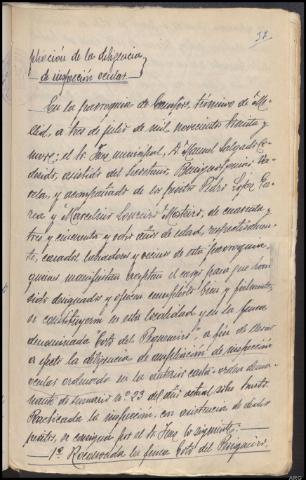 32
pliación de la diligencia
de inspección ocular.
En la parroquia de término de Me-
llid, a tres de julio de mil novecientos treinta y
nueve; el Sr. Juez municipal, D. Manuel Salgado
asistido del Secretario,
y acompañado de los peritos Pedro López Gar-
cía y Marcelino Mosteiro, de cuarenta y
tres y cincuenta y ocho años de edad, respectivamen-
te, casados, labradores y vecinos de esta parroquia,
quienes manifiestan aceptan el cargo para que han
sido designados y ofrecen cumplirlo bien y fielmente,
se constituyeron en esta localidad y en la finca
denominada "Coto del a fin de llevar
a efecto la diligencia de ampliación de inspección
ocular ordenada en la anterior carta-orden dima-
nante de sumario nº 93 del año actual sobre
Practicada la inspección, con asistencia de dichos
peritos, se consigna por el Sr. Juez lo siguiente:
1º Reconocida la finca Coto del